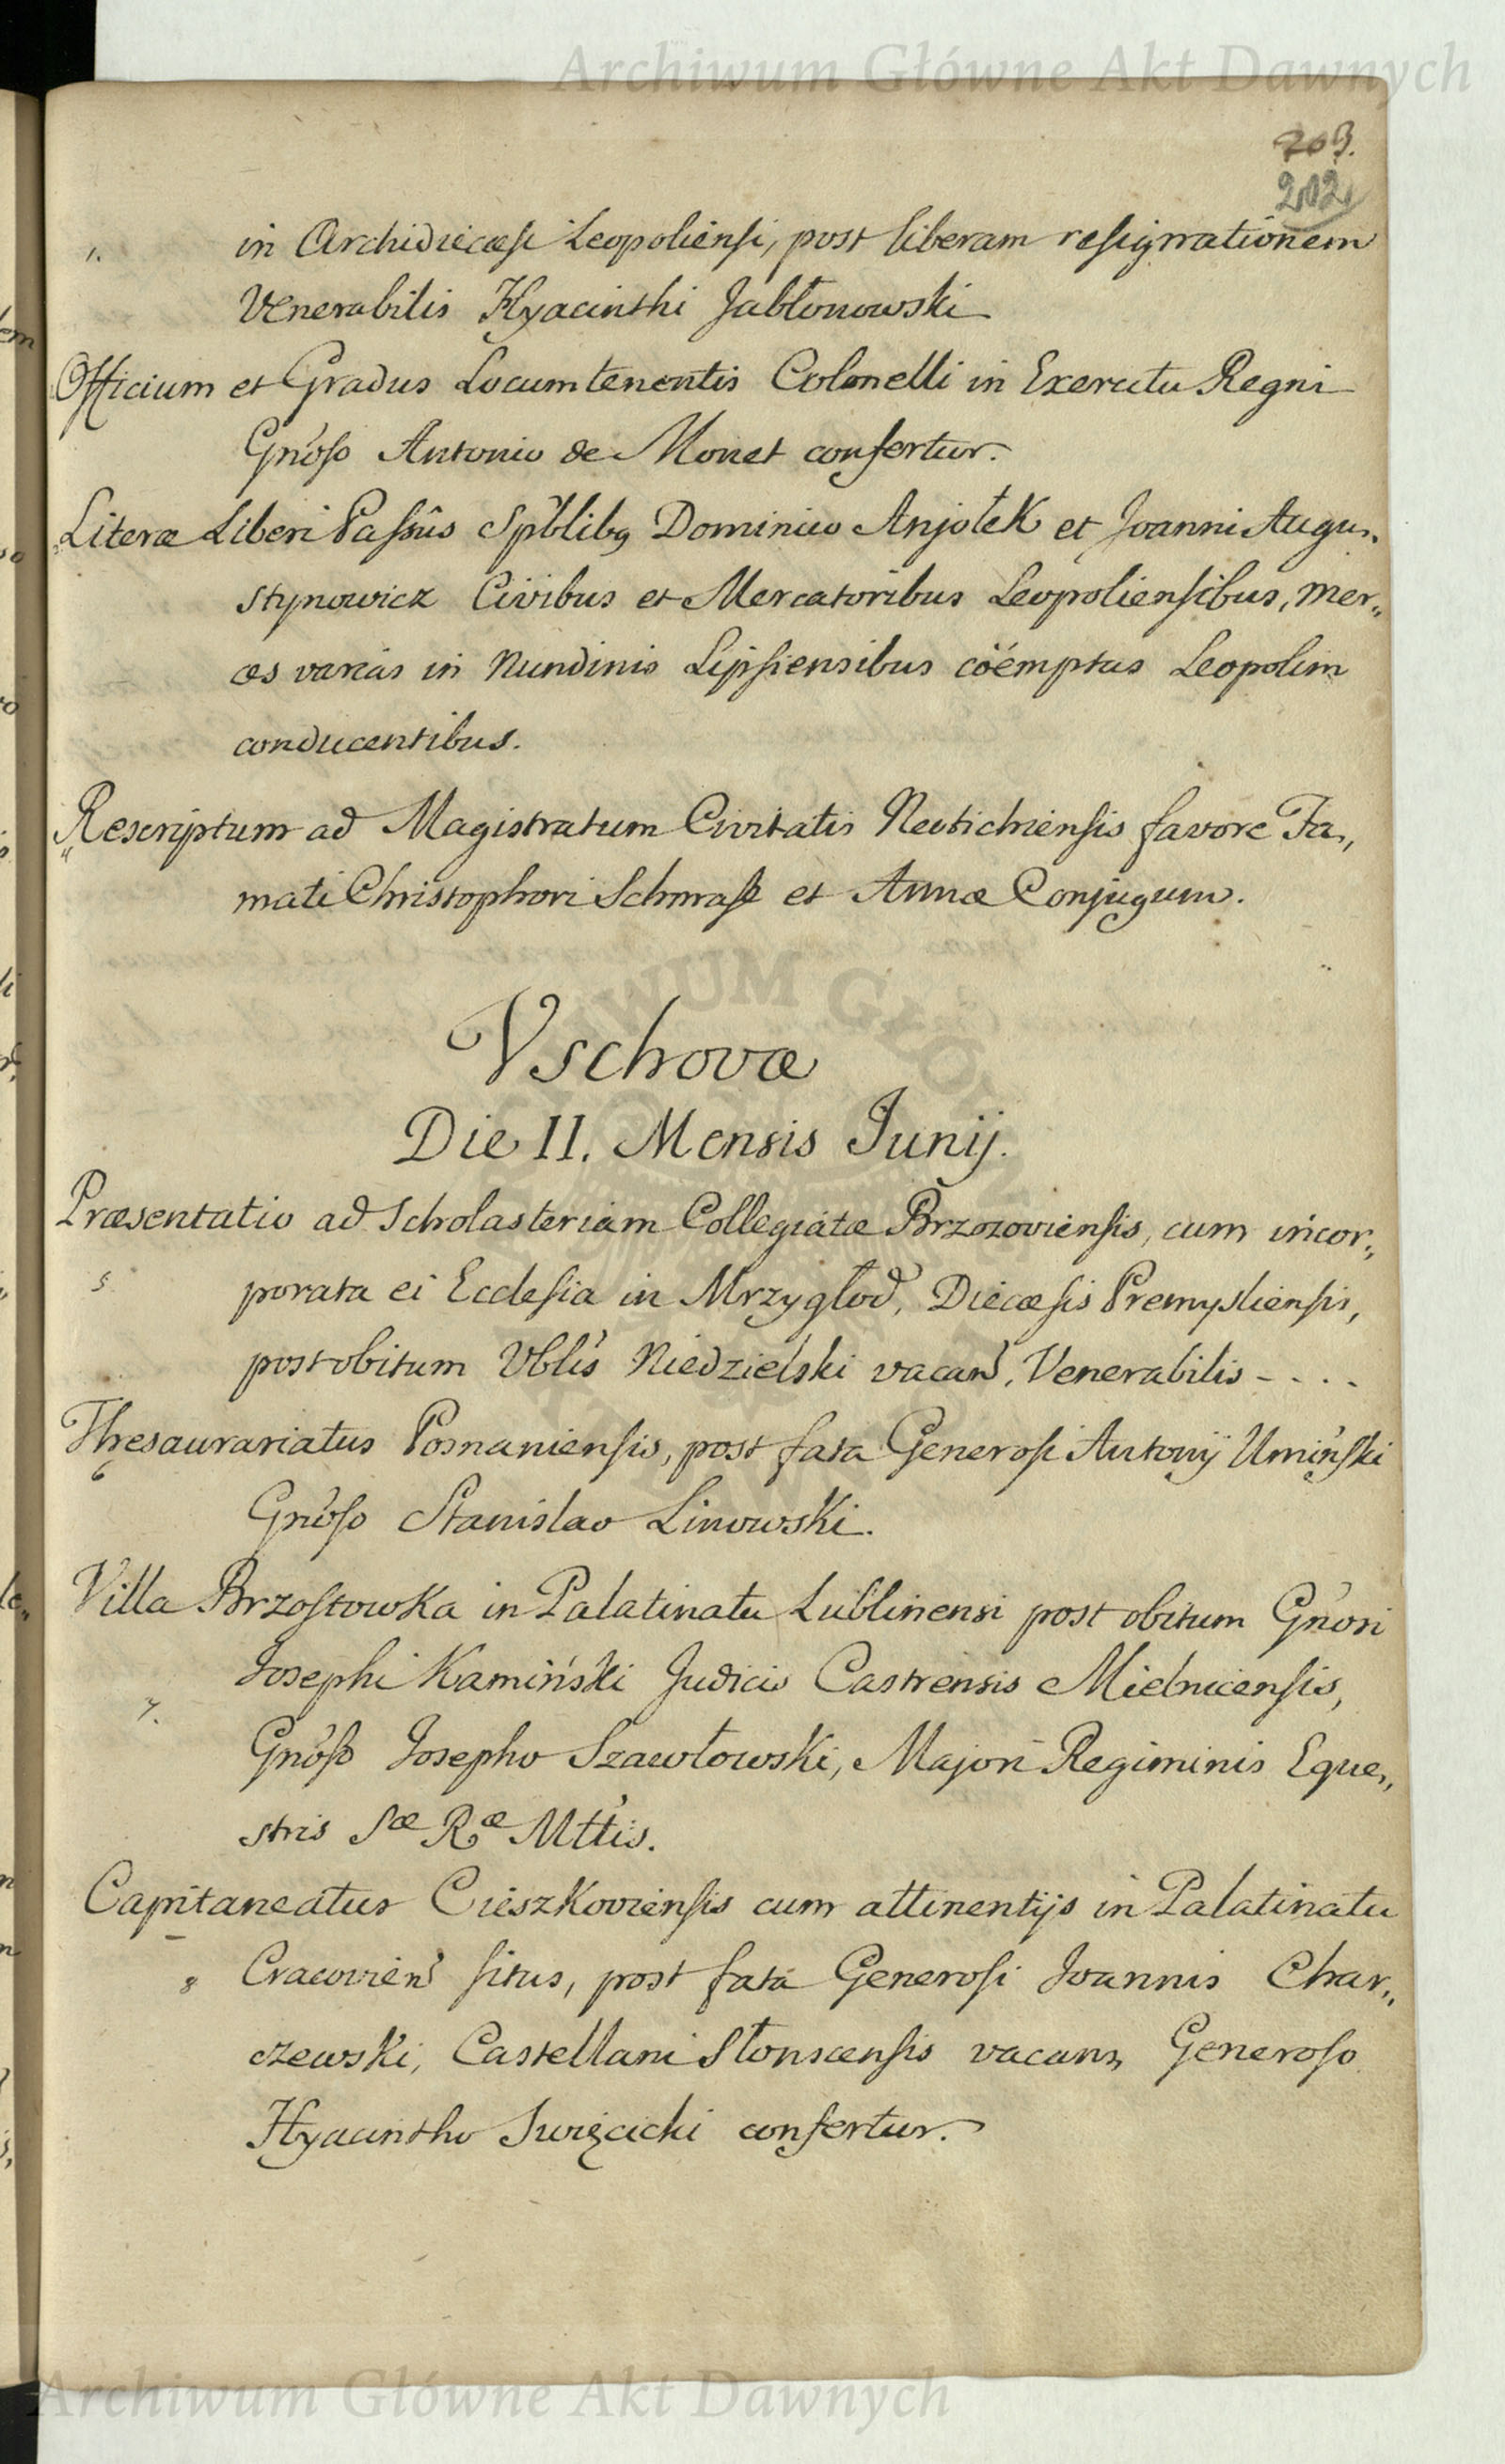 Archiwum Główne Akt Dawnych
203.
202
1. in Archidiœcesi Leopoliensi, post liberam resignationem
Venerabilis Hyacinthi Jabłonowski
Officium et Gradus Locumtenentis Colonelli in Exercitu Regni
Gnoso Antonio de Monet confertur.
Literæ Liberi Passûs Spblibq Dominico Anjołek et Joanni Augu„
stynowicz Civibus et Mercatoribus Leopoliensibus, Mer„
ces varias in Nundinis Lipsiensibus cöemptas Leopolim
conducentibus.
Rescriptum ad Magistratum Civitatis Neotichiensis favore Fa„
mati Christophori et Annæ Conjugum.
Vschovæ
Die II. Mensis Junij.
Præsentatio ad Scholasteriam Collegiatæ Brzozoviensis, cum incor„
5. porata ei Ecclesia in Mrzygłod, Diecæsis Premysliensis,
post obitum Vblis Niedzielski vacan, Venerabilis - . . .
Thesaurariatus Posnaniensis, post fata Generosi Antonij Umiński
6 Gnoso Stanislao Linowski.
Villa Brzostowka in Palatinatu Lublinensi post obitum Gnosi
Josephi Kamiński Judicis Castrensis Mielnicensis,
7. Gnoso Josepho Szawłowski, Majori Regiminis Eque„
stris Sæ Ræ Mttis.
Capitaneatus Cieszkoviensis cum attinentijs in Palatinatu
8 Cracovien situs, post fata Generosi Joannis Char„
czewski, Castellani Słonscensis vacans, Generoso
Hyacintho Swięcicki confertur.
Archiwum Główne Akt Dawnych